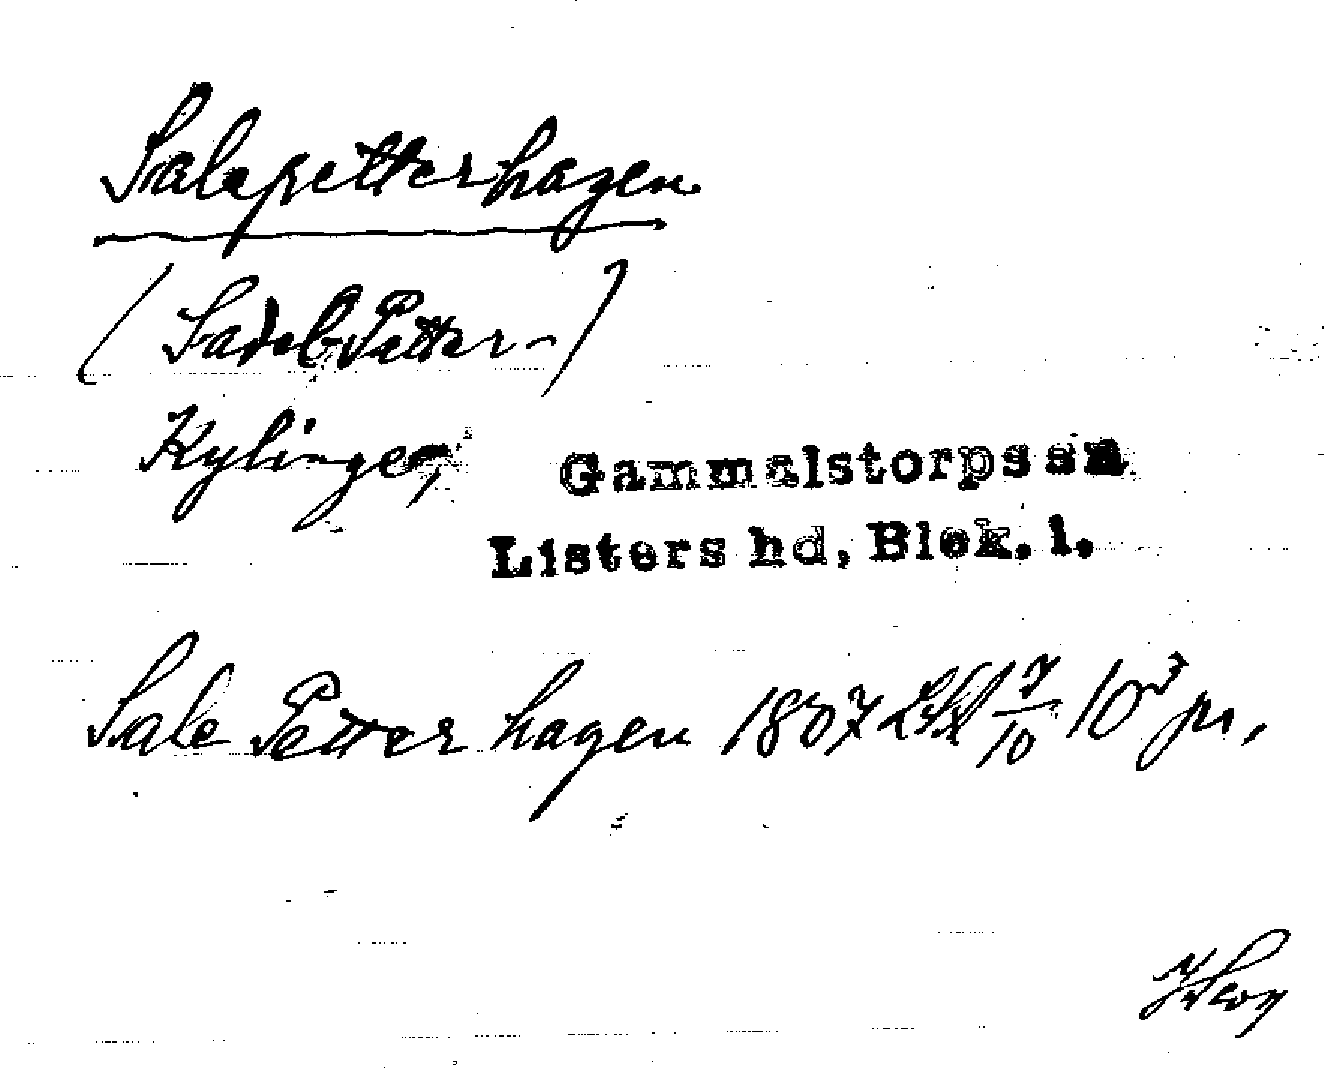 Salepetterhagen
(Sadel Petter-)
Kylinge,
Gammalstorps sn
Listers hd, Blek. l.
Sale Petter hagen 1807 LSA 7/10 10³ pr.